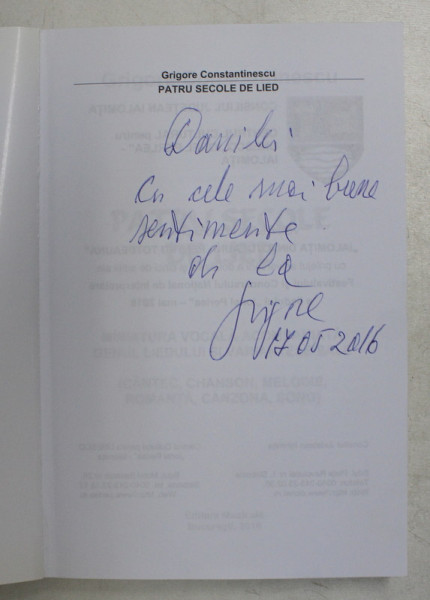 Grigore Constantinescu
PATRU SECOLE DE LIED
cu cele mai bune
sentimente
de la
Grigore
17 05 2016